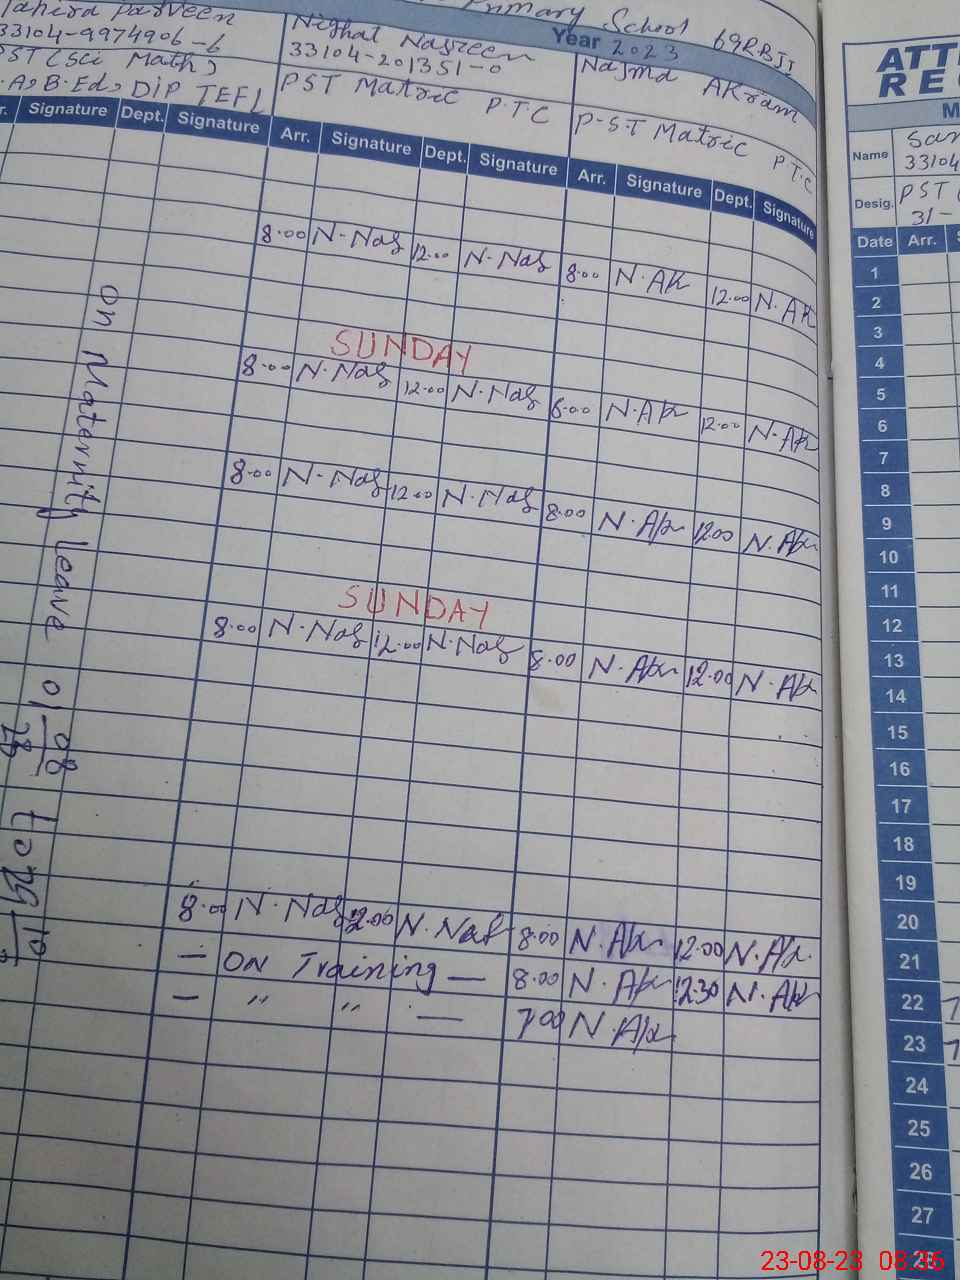 Primary School 69RBII
Year 2023
Tahira Parveen
33104-9974906-6
PST (Sci Math)
.A, B.Ed, DIP TEFL
Nighat Nasreen
33104-201351-0
PST Matric P.T.C
Najma AKram
P.S.T Matric P.T.C
r. Signature Dept. Signature Arr. Signature Dept. Signature Arr. Signature Dept. Signature
8.00 N.Nas 12.00 N.Nas 8.00 N.AK 12.00 N.AK
SUNDAY
8.00 N.Nas 12.00 N.Nas 8.00 N.AK 12.00 N.AK
8.00 N.Nas 12.00 N.Nas 8.00 N.Ak 12.00 N.Ak
SUNDAY
8.00 N.Nas 12.00 N.Nas 8.00 N.Ak 12.00 N.Ak
8.00 N.Nas 12.00 N.Nas 8.00 N.Ak 12.00 N.Ak.
— ON Training — 8.00 N.Ak 12.30 N.Ak
— " " — 7.00 N.Ak
on Maternity leave 01/08
ATT
RE
M
Name
33104
Desig. PST
31-
Date Arr. S
1
2
3
4
5
6
7
8
9
10
11
12
13
14
15
16
17
18
19
20
21
22 7
23 7
24
25
26
27
28
23-08-23 08:36